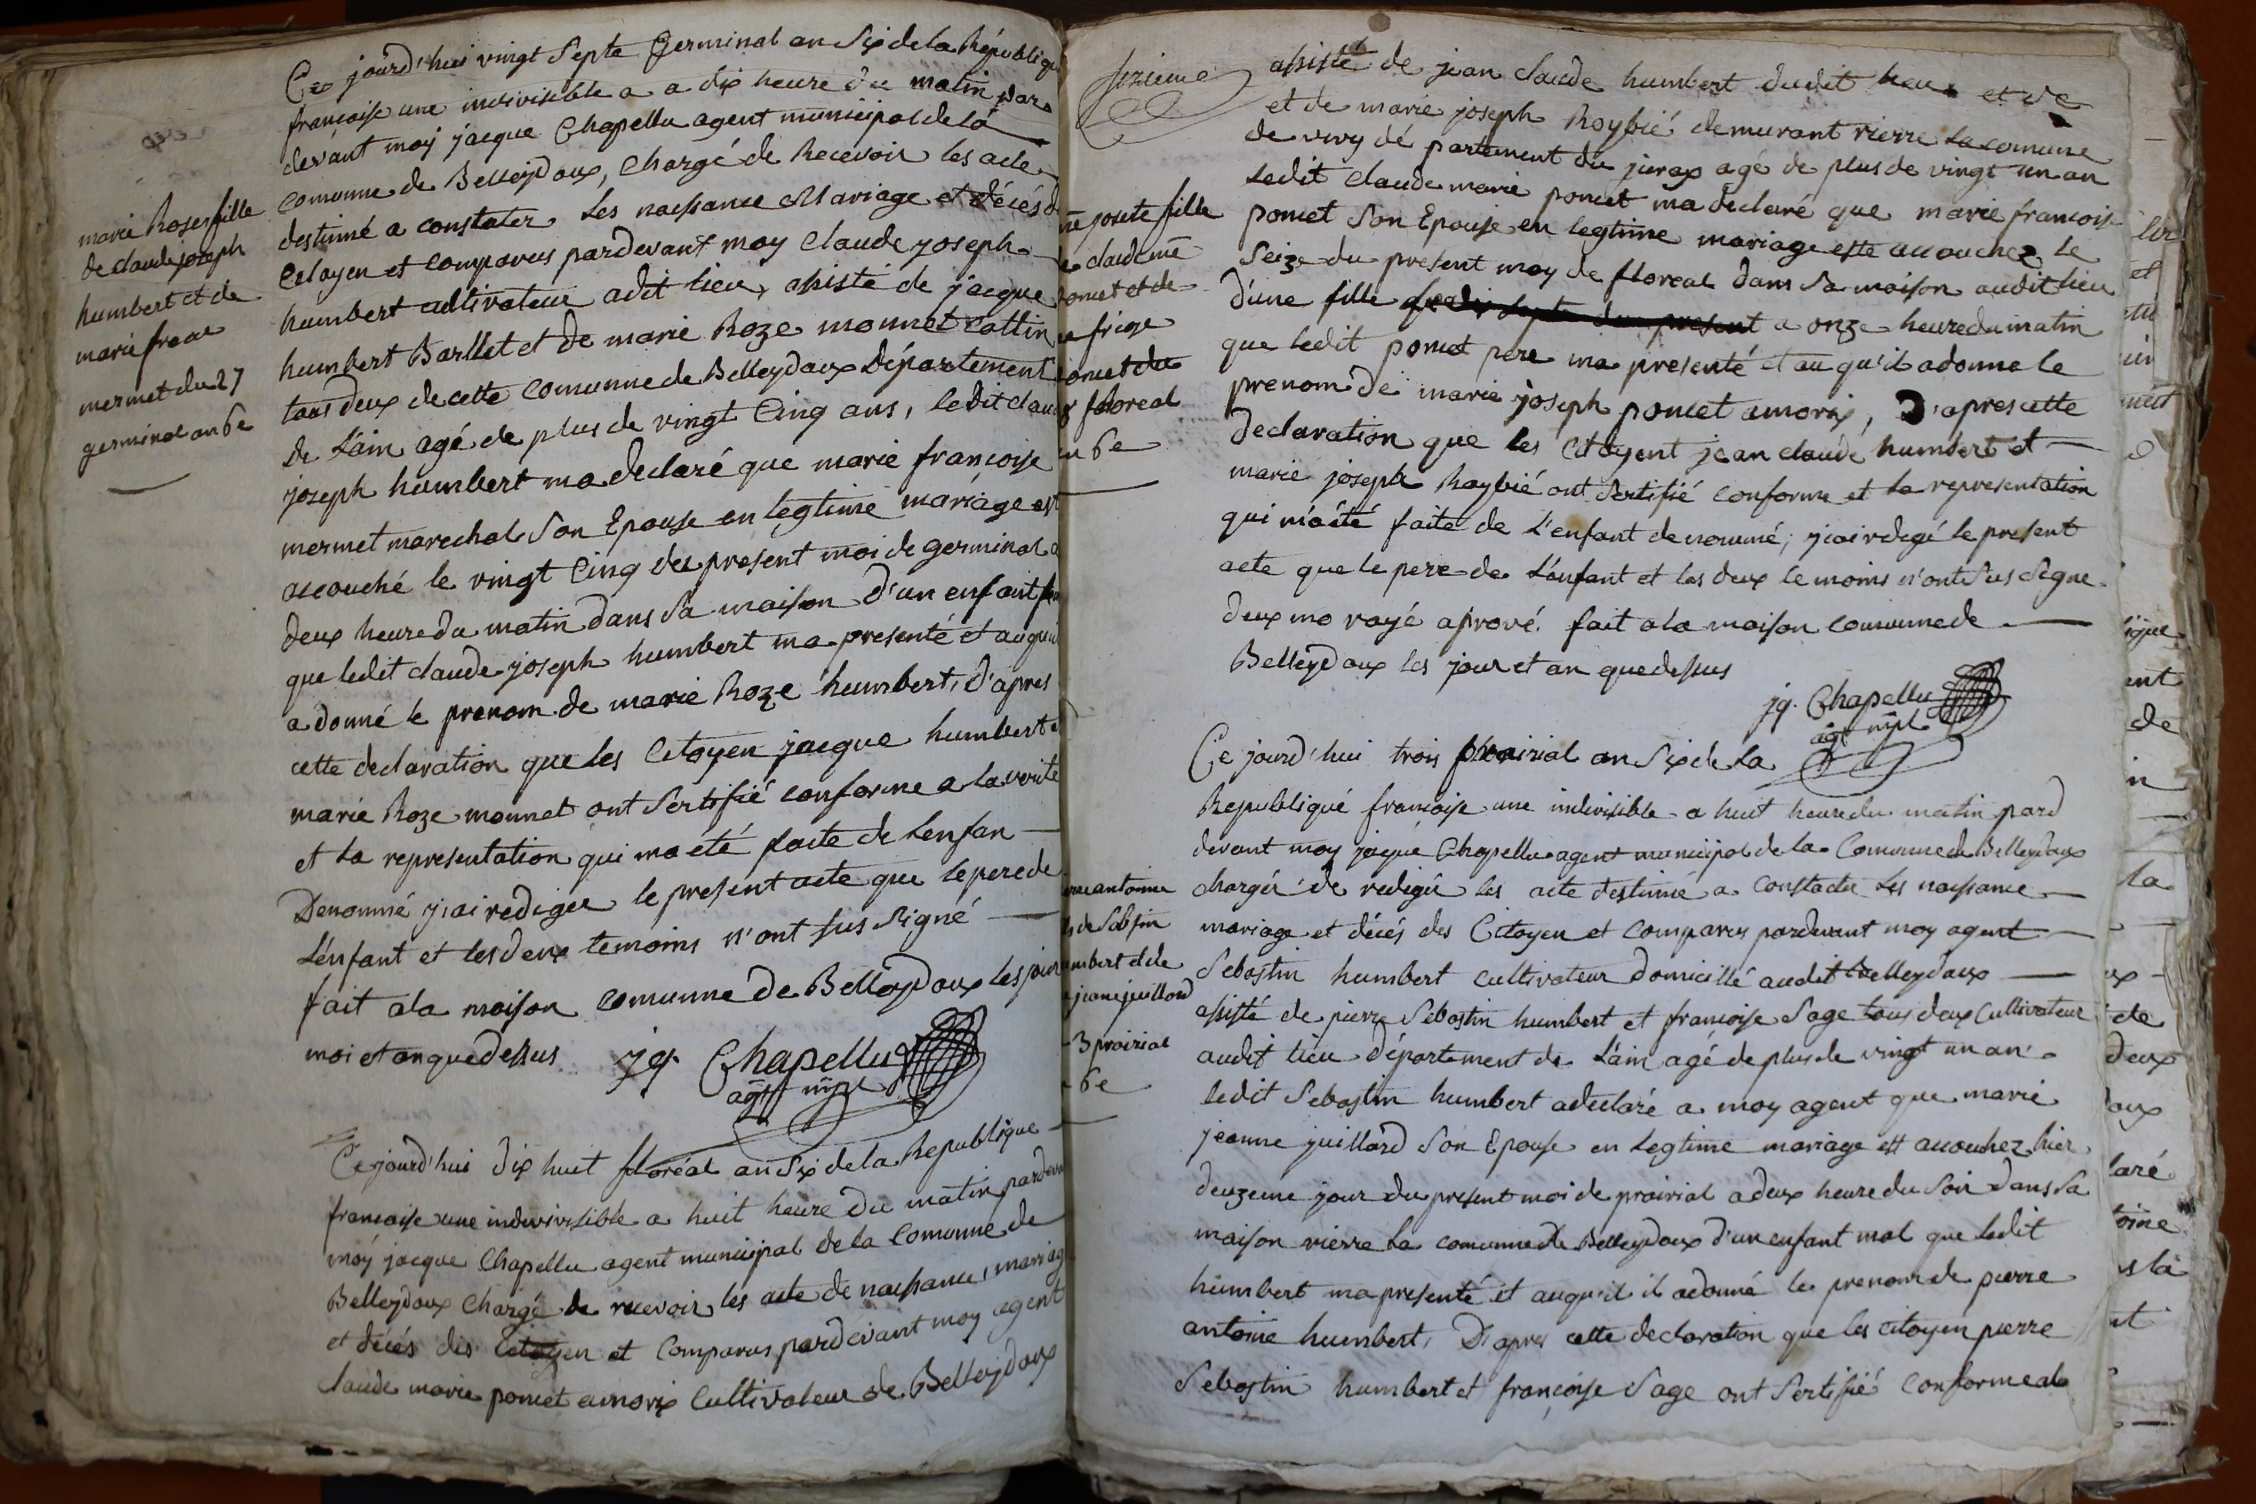 marie Roze fille
de claude joseph
humbert et de
marie frçoise
mermet du 27
germinal an 6e
Ce jourd'hui vingt Septe Germinal an Six de la Républiqu
françoise une indivisible a a dix heure du matin par
devant moy jacque Chapellu agent municipal de la
comunne de Belleydoux, Chargé de Recevoir les acte
destinné a constater les naissance Mariage et décés d
Citoyen et comparus pardevant moy Claude joseph
humbert cultivateur adit lieu, assisté de jacque
humbert Barllet et de marie Roze monnet cattin
tous deux de cette comunne de Belleydoux Département
de L'ain agé de plus de vingt Cinq ans, ledit claude
joseph humbert ma declaré que marie françoise
mermet marechal Son Epouse en legtime mariage est
accouché le vingt Cinq du present moi de germinal a
deux heure du matin dans Sa maison d'un enfant
que ledit claude joseph humbert ma presenté et auquil
a donné le prenom de marie Roze humbert, d'apres
cette declaration que les Citoyen jacque humbert e
marie Roze monnet ont Sertifié conforme a la verité
et la representation qui ma été faite de Lenfan
Denommé j'ai redigee le present acte que le pere de
L'enfant et les deux temoins n'ont sus Signé
fait a la maison comunne de Belleydoux les jour
moi et an que dessus jq. Chapellu
agt mpl
Ce jourd'hui dix huit floréal an Six de la Republique
françoise une indivisible a huit heure du matin pardeva
moy jacque Chapellu agent municipal de la Comunne de
Belleydoux Chargé de recevoir les acte de naissance, mariag
et décés des Citoyen et Comparus pardevant moy agent
Claude marie poncet amorix Cultivateur de Belleydoux
sizieme
assisté de jean claude humbert dudit lieu et de
et de marie joseph Roybié demurant rierre la comune
de viry département du jurax agé de plus de vingt un an
Ledit Claude marie poncet ma declaré que marie françoise
poncet Son Epouse en legtime mariage este accouchez le
Seize du present moy de floreal dans Sa maison audit lieu
d'une fille a onze heure du matin
que ledit poncet pere ma presenté et au qu'il a donne le
prenom de marie joseph poncet amorix, D'apres cette
declaration que les Citoyent jean claude humbert et
marie joseph Roybié ont Sertifié conforme et la representation
qui m'a été faite de L'enfant denommé, j'ai redegé le present
acte que le pere de L'enfant et les deux temoins n'ont sus Signe
deux mo rayé aprové. fait a la maison comunne de
Belleydoux les jour et an que dessus
jq. Chapellu
agt mpl
josete fille
claude me
poncet et de
poncet du
floreal
an 6e
Ce jourd'hui trois prairial an Six de la
Republiqué françoise une indivisible a huit heure du matin pard
devant moy jacque Chapellu agent municipal de la Comunne de Belleydoux
chargér de redigér les acte destinné a constater les naissance
mariage et décés des Citoyen et comparus pardevant moy agent
Sebastin humbert cultivateur domicillé audit Belleydoux
assisté de pierre Sebastin humbert et françoise Sage tous deux Cultivateur
audit lieu département de L'ain agé de plus de vingt un an
ledit Sebastin humbert a declaré a moy agent que marie
jeanne juillard Son Epouse en Legtime mariage est accouchez hier
deuzeme jour du present moi de prairial a deux heure du Soir dans Sa
maison rierre la comunne de Belleydoux d'un enfant mal que ledit
humbert ma presenté et auqu'il il a donné le prenom de pierre
antoine humbert, D'apres cette declaration que les citoyen pierre
Sebastin humbert et françoise Sage ont Sertifié conforme a la
antonne
de Sebstin
umbert et de
jeane juillard
3 prairial
6e